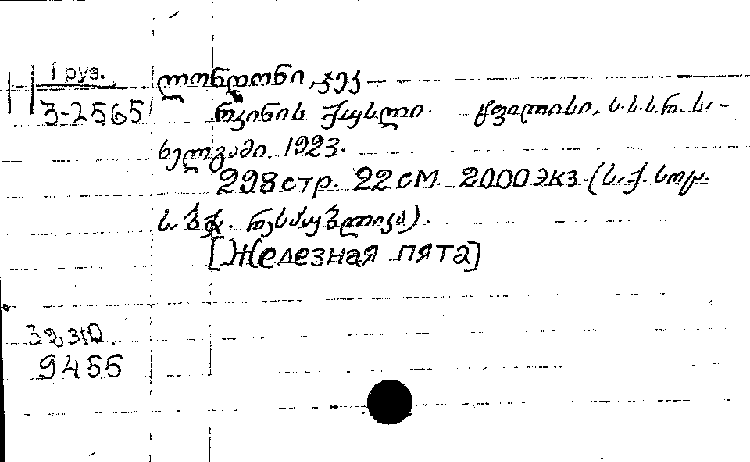 1 груз.
3-2565
ლონდონი, ჯეკ
რკინის ქუსლი. ტფილისი, ს.ს.ს.რ. სა-
ხელგამი. 1923.
298 стр. 22 см. 2000 экз. (ს.ქ. სოც.
ს. საბჭ. რესპუბლიკა).
[Железная пята]
9455